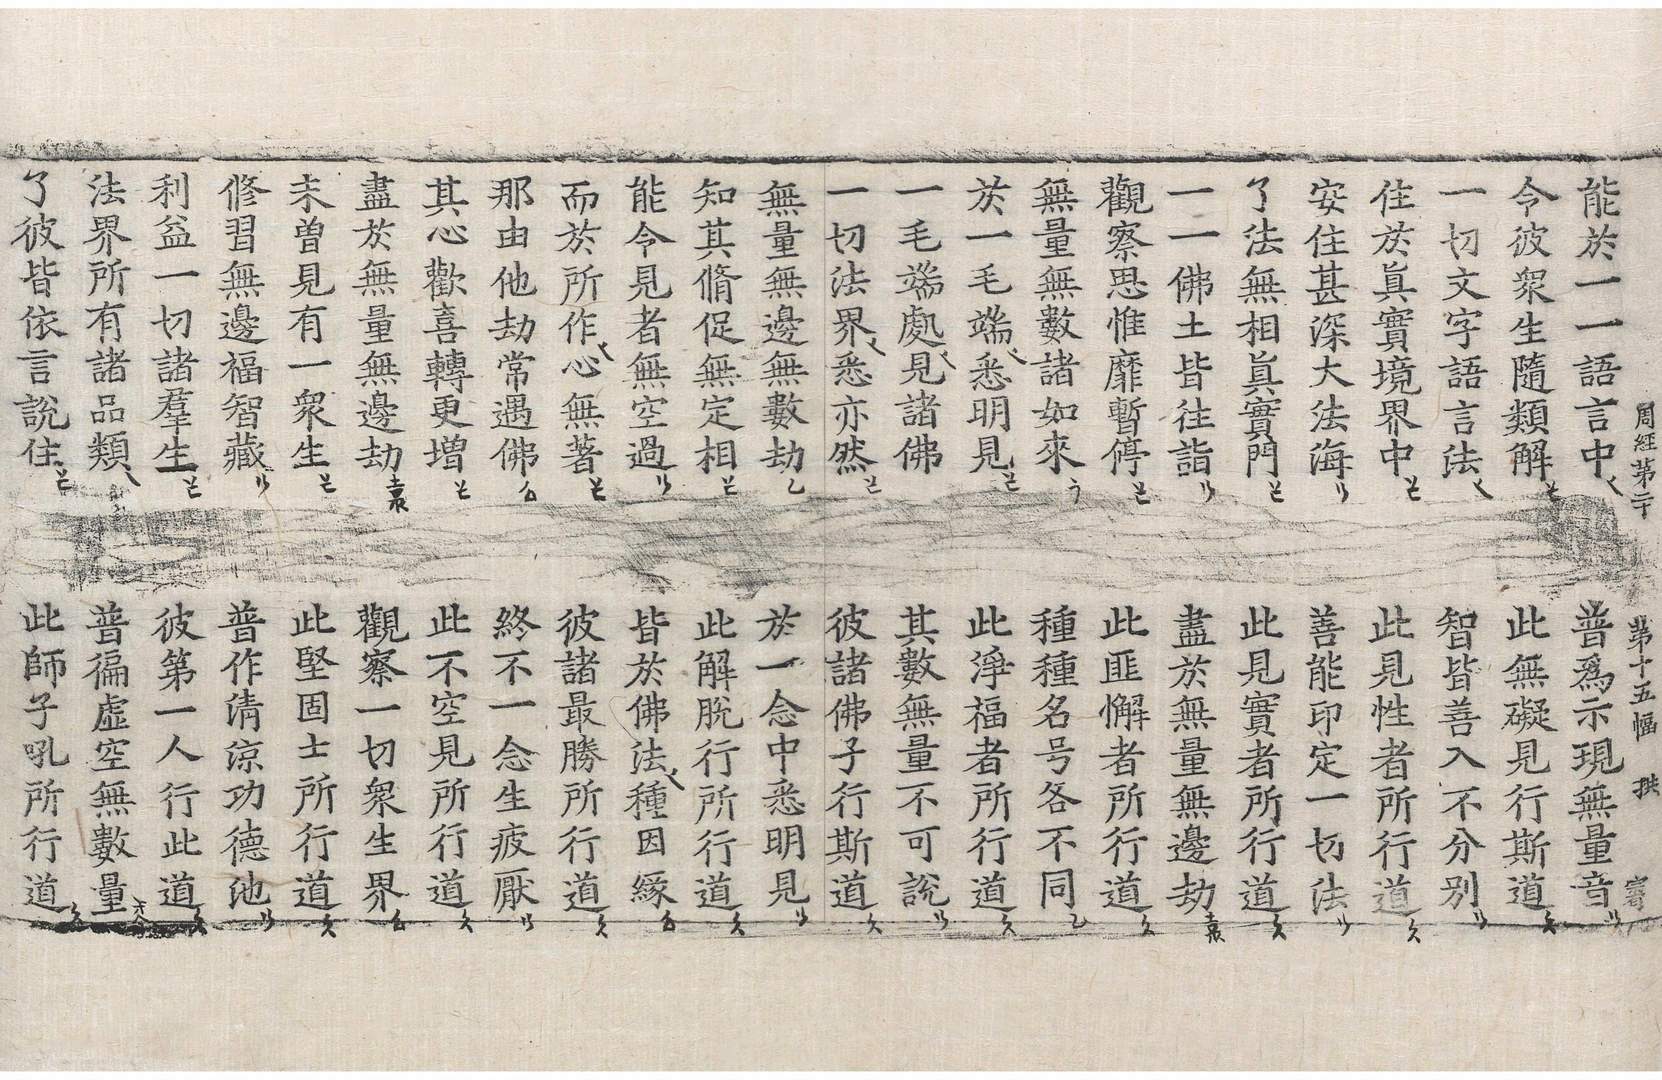 周經第二十 第十五幅
能於一一語言中 普爲示現無量音
令彼衆生隨類解 此無礙見行斯道
一切文字語言法 智皆善入不分別
住於眞實境界中 此見性者所行道
安住甚深大法海 善能印定一切法
了法無相眞實門 此見實者所行道
一一佛土皆往詣 盡於無量無邊劫
觀察思惟靡暫停 此匪懈者所行道
無量無數諸如來 種種名号各不同
於一毛端悉明見 此淨福者所行道
一毛端處見諸佛 其數無量不可說
一切法界悉亦然 彼諸佛子行斯道
無量無邊無數劫 於一念中悉明見
知其脩促無定相 此解脫行所行道
能令見者無空過 皆於佛法種因緣
而於所作心無著 彼諸最勝所行道
那由他劫常遇佛 終不一念生疲厭
其心歡喜轉更增 此不空見所行道
盡於無量無邊劫 觀察一切衆生界
未曾見有一衆生 此堅固士所行道
修習無邊福智藏 普作淸涼功德池
利益一切諸羣生 彼第一人行此道
法界所有諸品類 普徧虛空無數量
了彼皆依言說住 此師子吼所行道